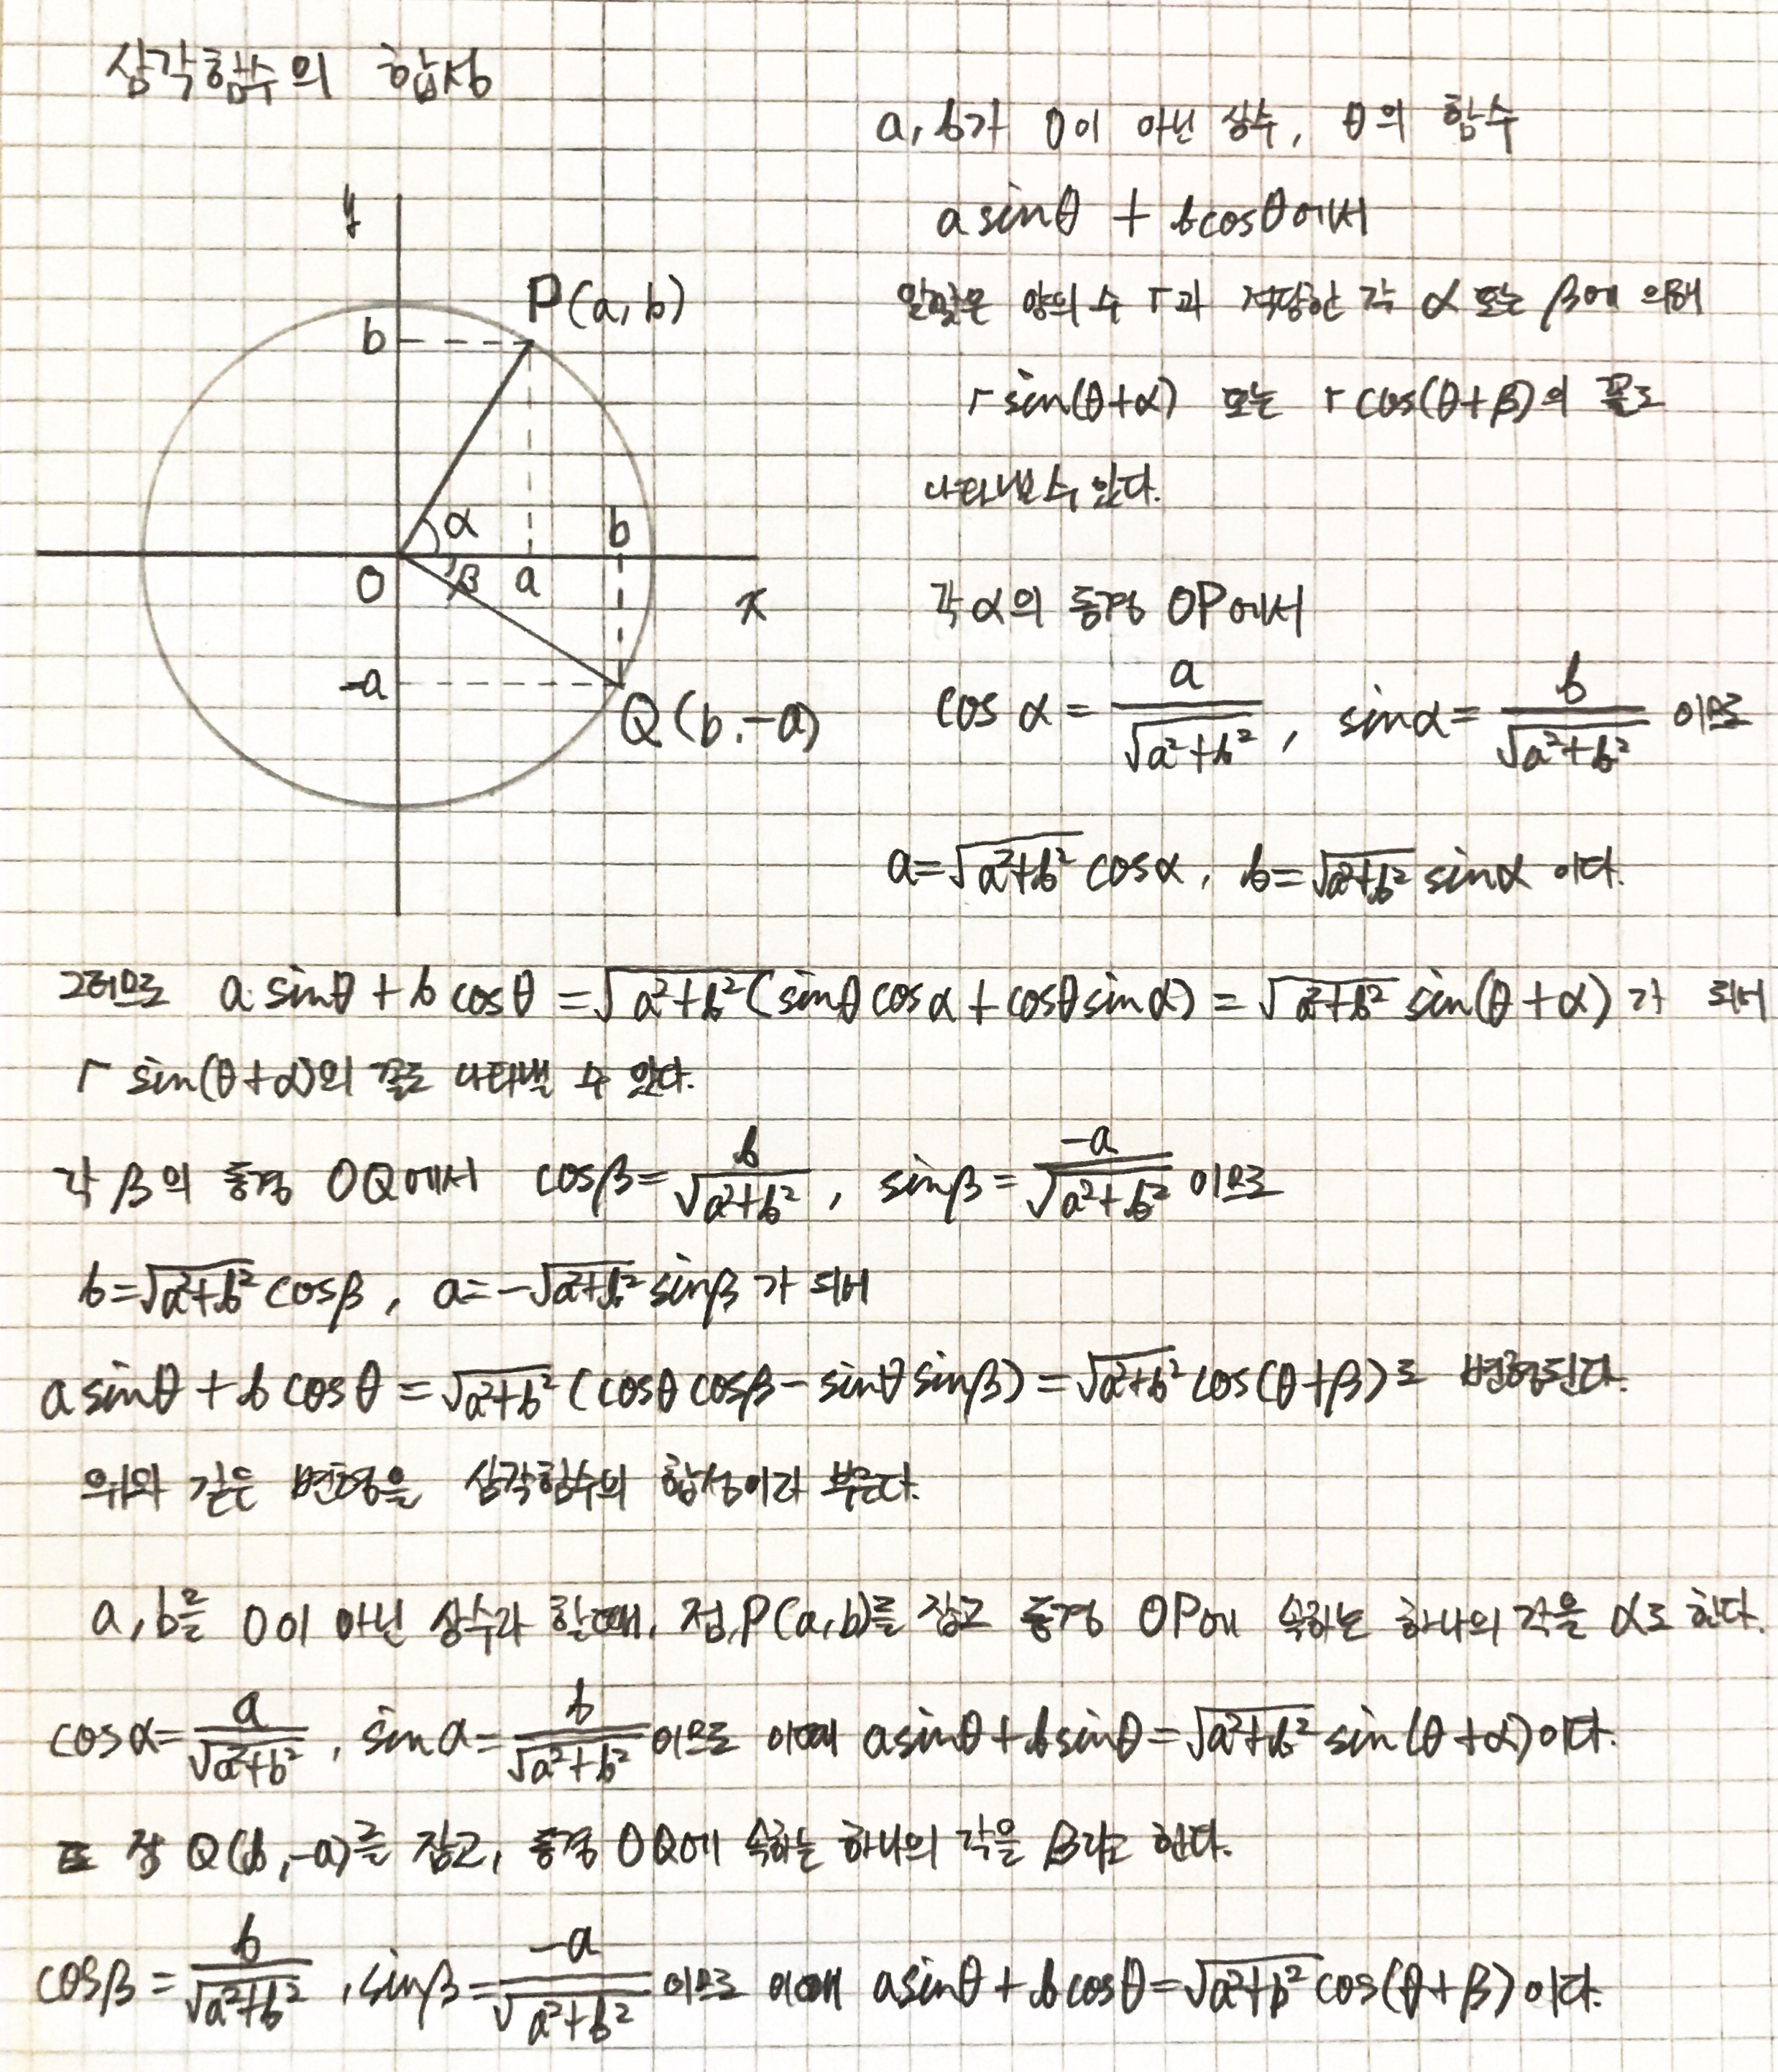 삼각함수의 합성
y
P(a, b)
b
α
b
O
β
a
x
-a
Q(b, -a)
a, b가 0이 아닌 상수, θ의 함수
a sinθ + b cosθ에서
알맞은 양의 수 r과 적당한 각 α 또는 β에 의해
r sin(θ+α) 또는 r cos(θ+β)의 꼴로
나타낼 수 있다.
각 α의 동경 OP에서
cos α = a/√(a²+b²), sinα = b/√(a²+b²) 이므로
a=√(a²+b²) cosα, b=√(a²+b²) sinα 이다.
그러므로 a sinθ + b cosθ = √(a²+b²)(sinθ cosα + cosθ sinα) = √(a²+b²) sin(θ+α)가 되어
r sin(θ+α)의 꼴로 나타낼 수 있다.
각 β의 동경 OQ에서 cosβ = b/√(a²+b²), sinβ = -a/√(a²+b²) 이므로
b=√(a²+b²) cosβ, a=-√(a²+b²) sinβ가 되어
a sinθ + b cosθ = √(a²+b²) (cosθ cosβ - sinθ sinβ) = √(a²+b²) cos(θ+β)로 변형된다.
위와 같은 변형을 삼각함수의 합성이라 부른다.
a, b를 0이 아닌 상수라 할 때, 점 P(a, b)를 잡고 동경 OP에 속하는 하나의 각을 α로 한다.
cosα = a/√(a²+b²), sinα = b/√(a²+b²) 이므로 이때 a sinθ + b sinθ = √(a²+b²) sin(θ+α)이다.
또 점 Q(b, -a)를 잡고, 동경 OQ에 속하는 하나의 각을 β라고 한다.
cosβ = b/√(a²+b²), sinβ = -a/√(a²+b²) 이므로 이때 a sinθ + b cosθ = √(a²+b²) cos(θ+β)이다.